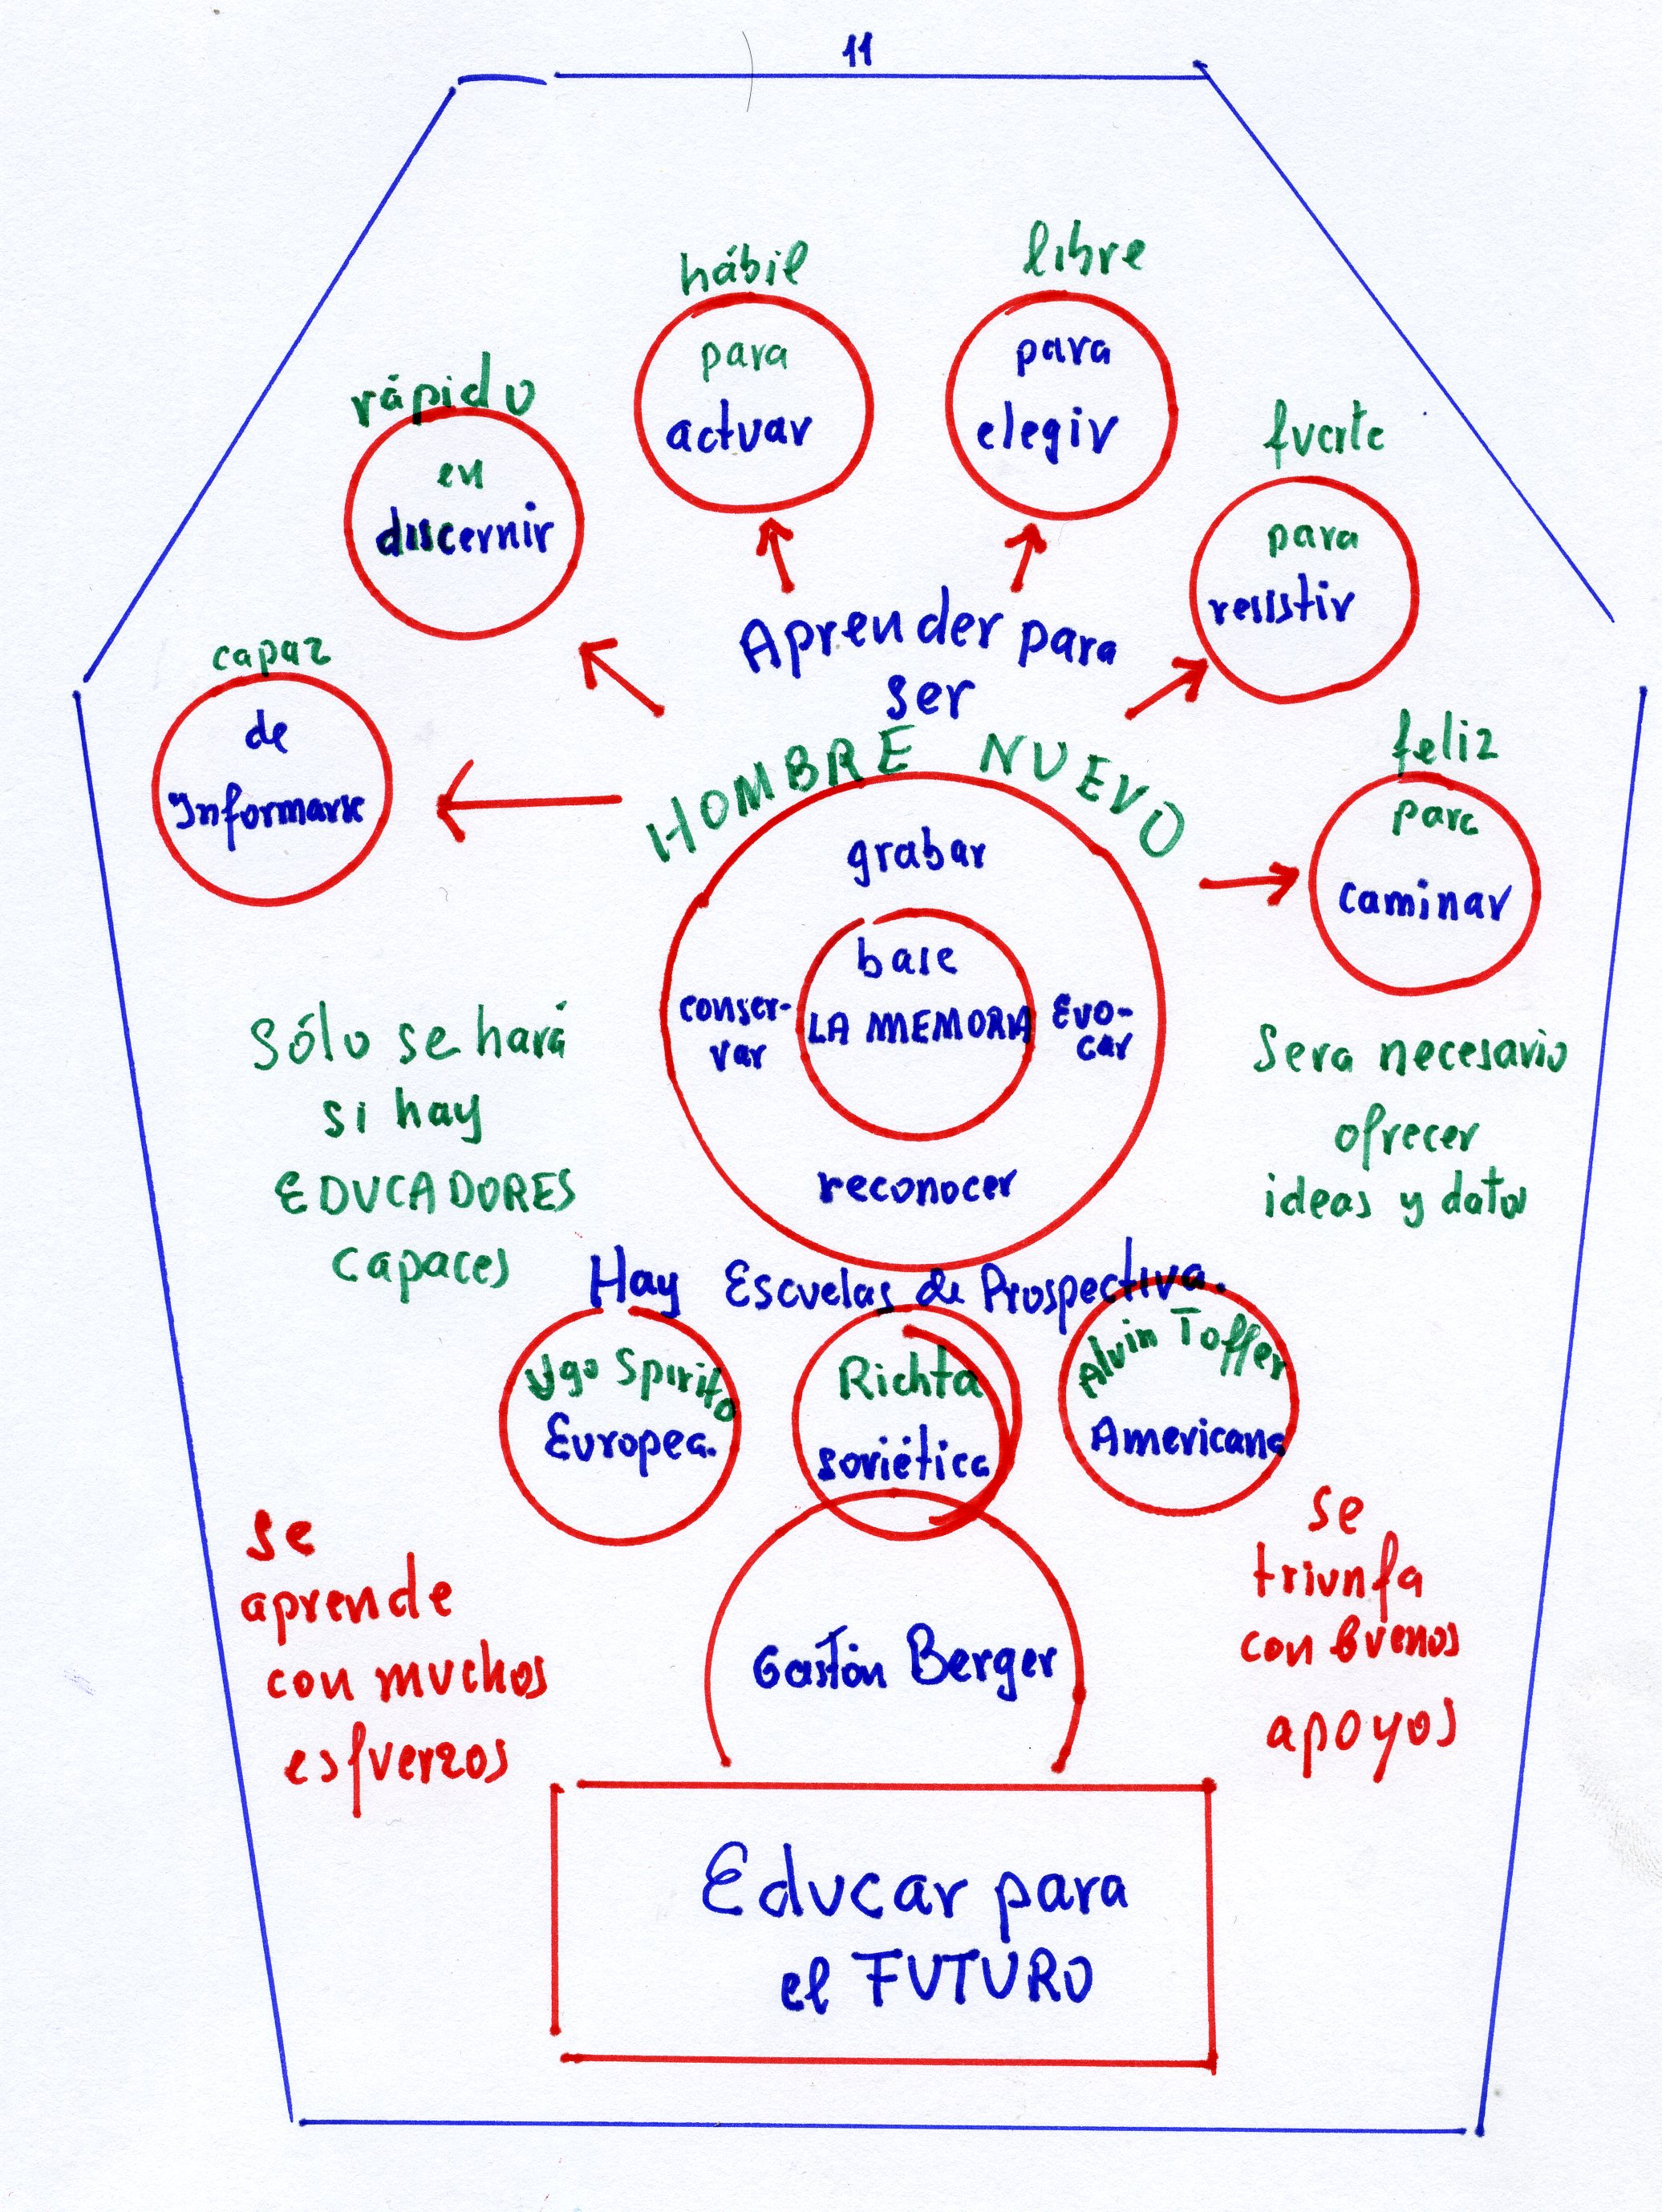 11
hábil
para
actuar
libre
para
elegir
rápido
en
discernir
fuerte
para
resistir
capaz
de
Informarse
feliz
para
caminar
Aprender para
ser
HOMBRE NUEVO
grabar
conser-
var
base
LA MEMORIA
Evo-
car
reconocer
Sólo se hará
si hay
EDUCADORES
capaces
Sera necesario
ofrecer
ideas y datos
Hay Escuelas de Prospectiva.
Ugo Spirito
Europea.
Richta
soviética
Alvin Toffer
Americana
Gastón Berger
se
aprende
con muchos
esfuerzos
se
triunfa
con buenos
apoyos
Educar para
el FUTURO